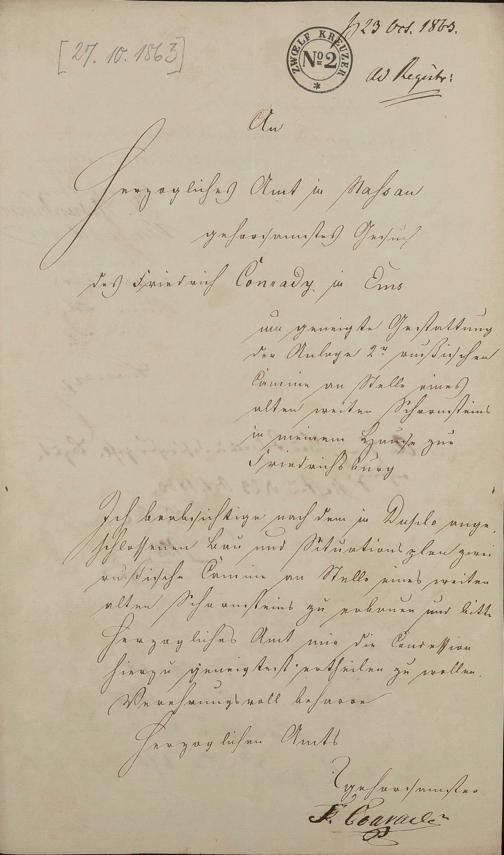 [27.10.1863]
ZWOELF KREUZER
No 2
23 Oct. 1863.
ad Registr:
An
Herzogliches Amt in Nassau
gehorsamstes Gesuch
des Friedrich Conrady in Ems
um geneigte Gestattung
der Anlage 2er rußischen
Camine an Stelle eines
alten weiten Schornsteins
in meinem Hause zur
Friedrichsburg
Ich beabsichtige nach dem in Duplo ange-
schlossenen Bau und Situationsplan zwei
rußische Camine an Stelle eines weiten
alten Schornsteins zu erbauen und bitte
Herzogliches Amt mir die Concession
hierzu geneigtest ertheilen zu wollen.
Verehrungsvoll beharre
Herzoglichen Amts
gehorsamster
F. Conrady